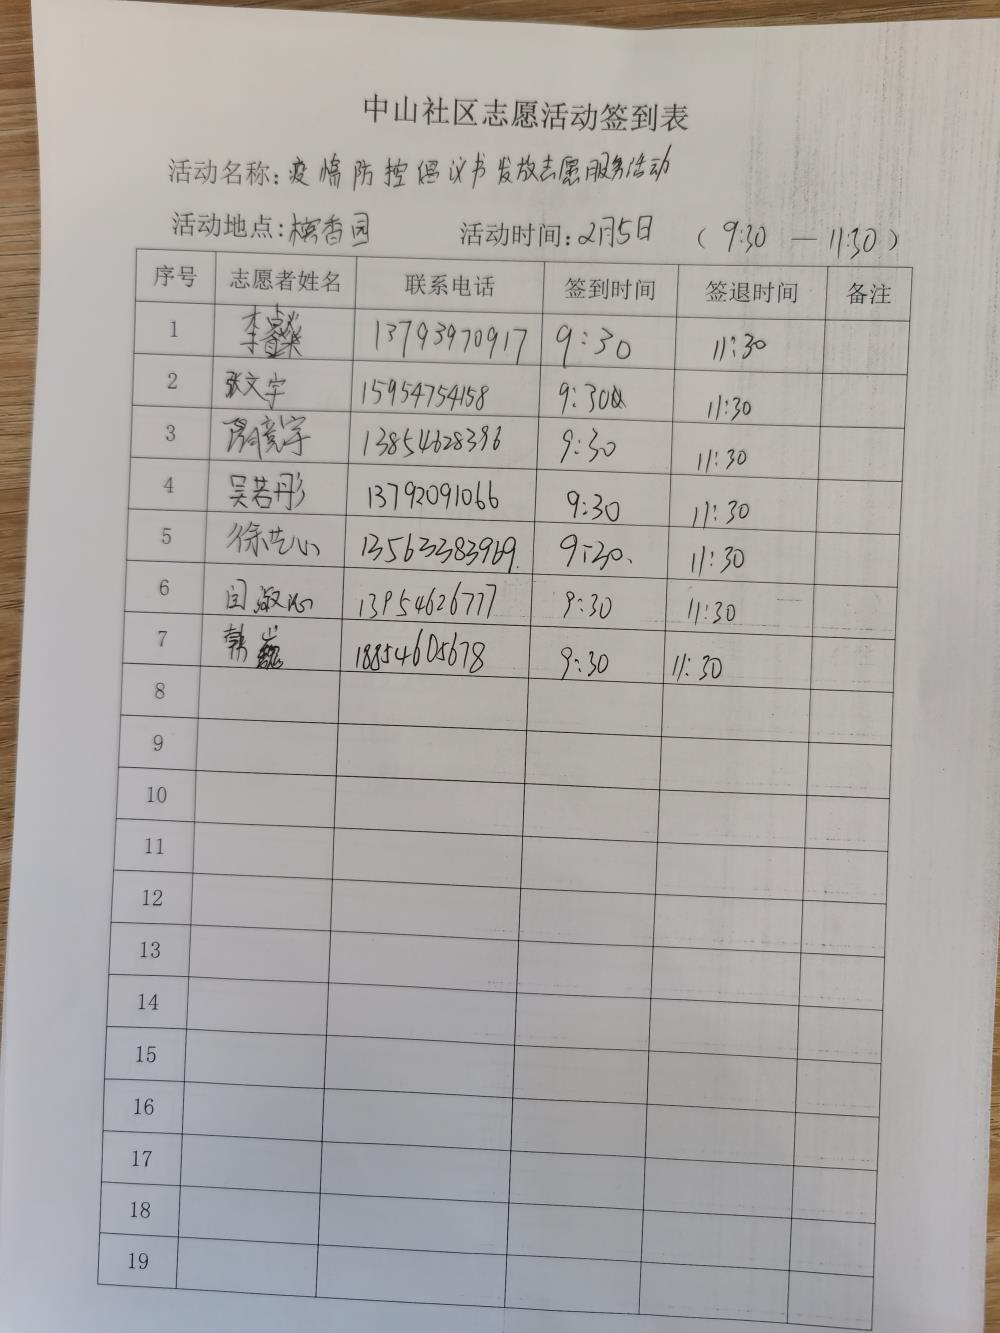 中山社区志愿活动签到表
活动名称: 疫情防控倡议书发放志愿服务活动
活动地点: 槟香园 活动时间: 2月5日 (9:30 — 11:30)
序号 志愿者姓名 联系电话 签到时间 签退时间 备注
1 李睿燊 13793970917 9:30 11:30
2 张文宇 15954754158 9:30 11:30
3 13854628396 9:30 11:30
4 吴若彤 13792091066 9:30 11:30
5 徐艺心 13563383969 9:30 11:30
6 闫淑沁 13954626777 9:30 11:30
7 韩巍 18854605678 9:30 11:30
8
9
10
11
12
13
14
15
16
17
18
19